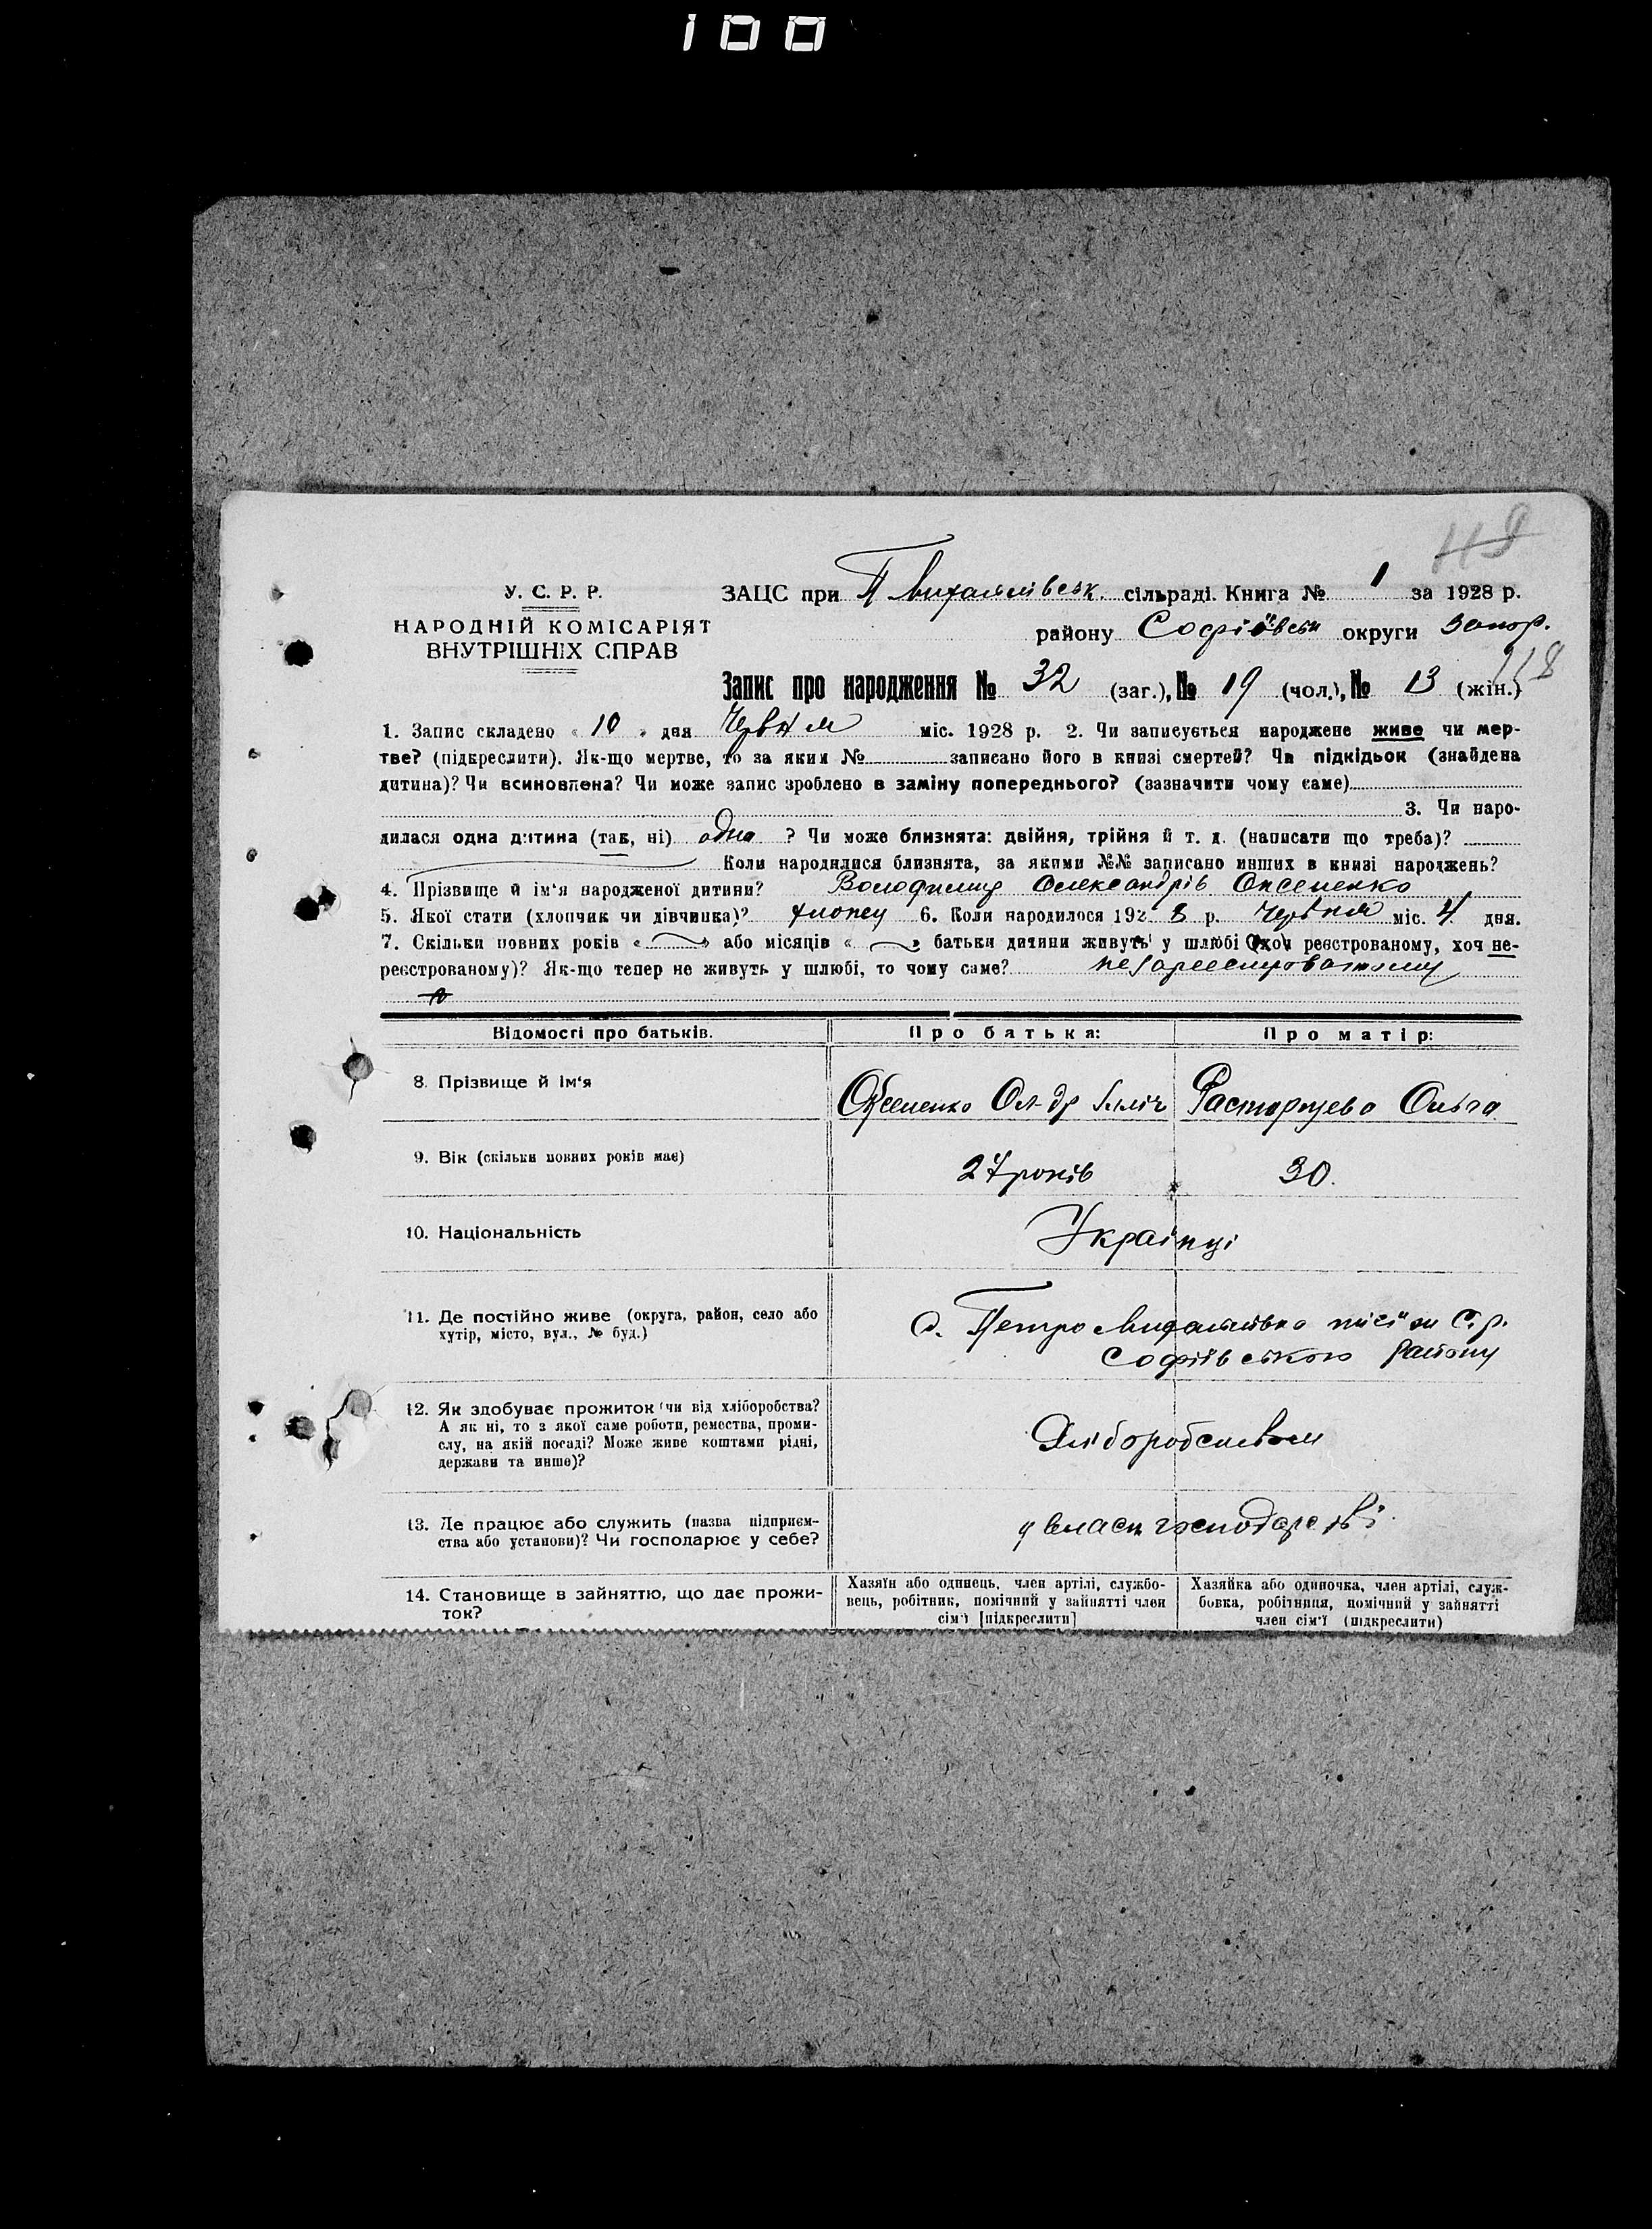 100
49
У. С. Р. Р.
НАРОДНІЙ КОМІСАРІЯТ
ВНУТРІШНІХ СПРАВ
ЗАЦС при П Михайлівськ. сільраді. Книга № 1 за 1928 р.
району Софіївськ округи Запор.
118
Запис про народження № 32 (заг.), № 19 (чол.), № 13 (жін.)
1. Запис складено « 10 » дня Червня міс. 1928 р. 2. Чи записується народжене живе чи мер-
тве? (підкреслити). Як-що мертве, то за яким № записано його в книзі смертей? Чи підкідьок (знайдена
дитина)? Чи всиновлена? Чи може запис зроблено в заміну попереднього? (зазначити чому саме)
3. Чи наро-
дилася одна дитина (так, ні) одна ? Чи може близнята: двійня, трійня й т. д. (написати що треба)?
Коли народилися близнята, за якими №№ записано инших в книзі народжень?
4. Прізвище й ім'я народженої дитини? Володимир Олександрів Оксененко
5. Якої стати (хлопчик чи дівчинка)? хлопец 6. Коли народилося 192 8 р. Червня міс. 4 дня.
7. Скільки повних років « » або місяців « » батьки дитини живуть у шлюбі (хоч реєстрованому, хоч не-
реєстрованому)? Як-що тепер не живуть у шлюбі, то чому саме? незареєстрованому
Відомості про батьків.
Про батька:
Про матір:
8. Прізвище й ім'я
Оксененко Ол-др
Расторгуева Ольга
9. Вік (скільки повних років має)
27 років
30.
10. Національність
Українці
11. Де постійно живе (округа, район, село або
хутір, місто, вул., № буд.)
с. Петро Михайлівка тієї ж С. р.
Софіївського району
12. Як здобуває прожиток (чи від хліборобства?
А як ні, то з якої саме роботи, ремества, проми-
слу, на якій посаді? Може живе коштами рідні,
держави та инше)?
Хліборобством
13. Де працює або служить (назва підприєм-
ства або установи)? Чи господарює у себе?
у власн господарстві
14. Становище в зайняттю, що дає прожи-
ток?
Хазяїн або одинець, член артілі, службо-
вець, робітник, помічний у зайнятті член
сім'ї [підкреслити]
Хазяйка або одиночка, член артілі, служ-
бовка, робітниця, помічний у зайнятті
член сім'ї (підкреслити)